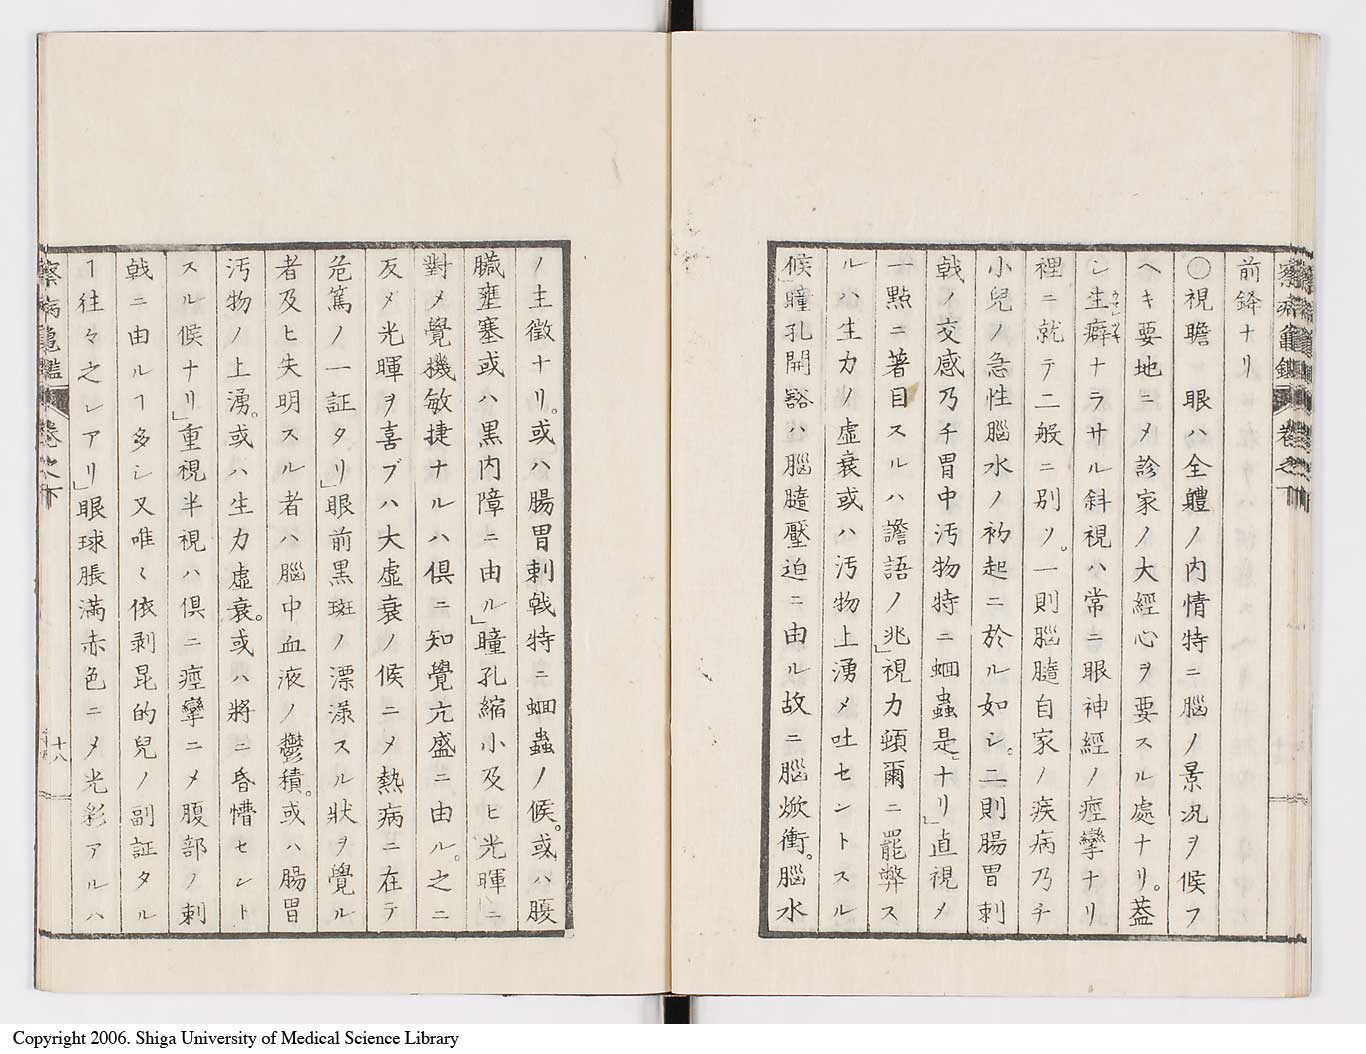 察病龜鑑 卷之下
前鋒ナリ
〇視瞻 眼ハ全軆ノ内情特ニ腦ノ景况ヲ候フ
ヘキ要地ニメ診家ノ大經心ヲ要スル處ナリ。葢
シ生癖ナラサル斜視ハ常ニ眼神經ノ痙攣ナリ
裡ニ就テ二般ニ別ツ。一則腦髓自家ノ疾病乃チ
小兒ノ急性腦水ノ初起ニ於ル如シ。二則腸胃刺
戟ノ交感乃チ胃中汚物特ニ蛔蟲是ナリ」直視メ
一點ニ著目スルハ譫語ノ兆」視力頓爾ニ罷弊ス
ルハ生力ノ虛衰或ハ汚物上湧メ吐セントスル
候」瞳孔開豁ハ腦髓壓迫ニ由ル故ニ腦焮衝。腦水
ノ主徴ナリ。或ハ腸胃刺戟特ニ蛔蟲ノ候。或ハ腹
臓壅塞或ハ黒内障ニ由ル」瞳孔縮小及ヒ光暉ニ
對メ覺機敏捷ナルハ俱ニ知覺亢盛ニ由ル。之ニ
反メ光暉ヲ喜ブハ大虛衰ノ候ニメ熱病ニ在テ
危篤ノ一証タリ」眼前黒斑ノ漂漾スル狀ヲ覺ル
者及ヒ失明スル者ハ腦中血液ノ鬱積。或ハ腸胃
汚物ノ上湧。或ハ生力虛衰。或ハ將ニ昏懵セント
スル候ナリ」重視半視ハ俱ニ痙攣ニメ腹部ノ刺
戟ニ由ルヿ多シ又唯〻依剥昆的兒ノ副証タル
ヿ往々之レアリ」眼球脹滿赤色ニメ光彩アルハ
察病龜鑑 卷之下 十八
Copyright 2006. Shiga University of Medical Science Library